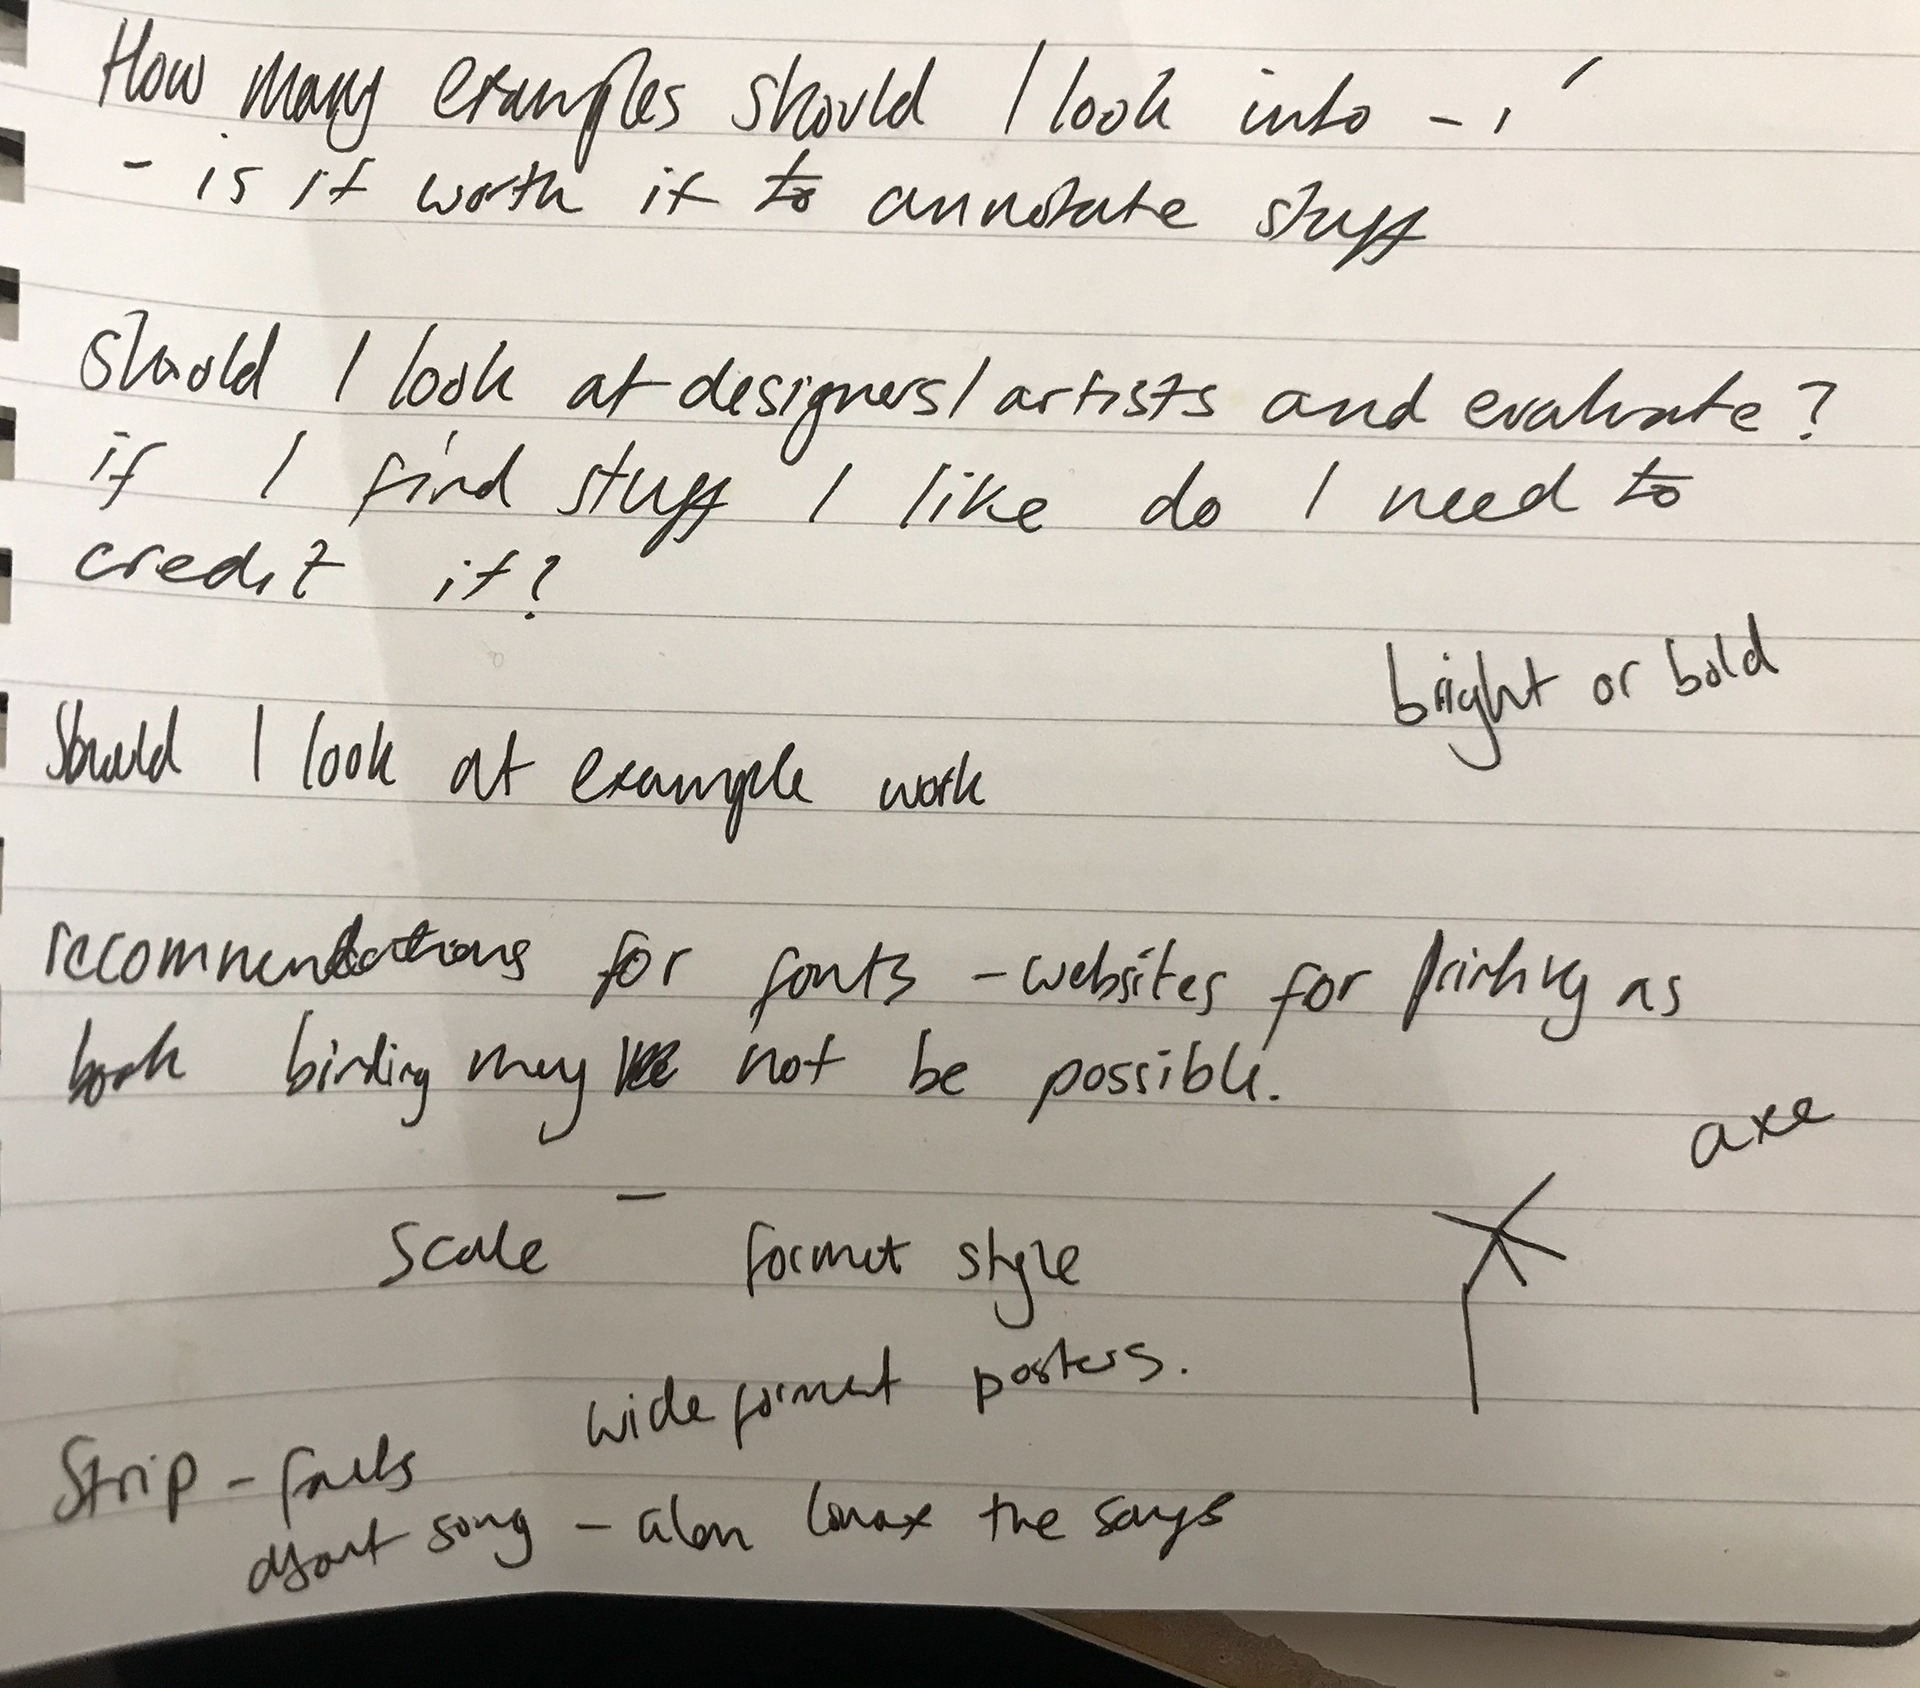 How many examples should I look into -
- is it worth it to annotate stuff
Should I look at designers/artists and evaluate?
if I find stuff I like do I need to
credit it?
bright or bold
Should I look at example work
recommendations for fonts - websites for printing as
book binding may not be possible.
axe
Scale - format style
wide format posters.
Strip - facts
song - alan lomax the songs